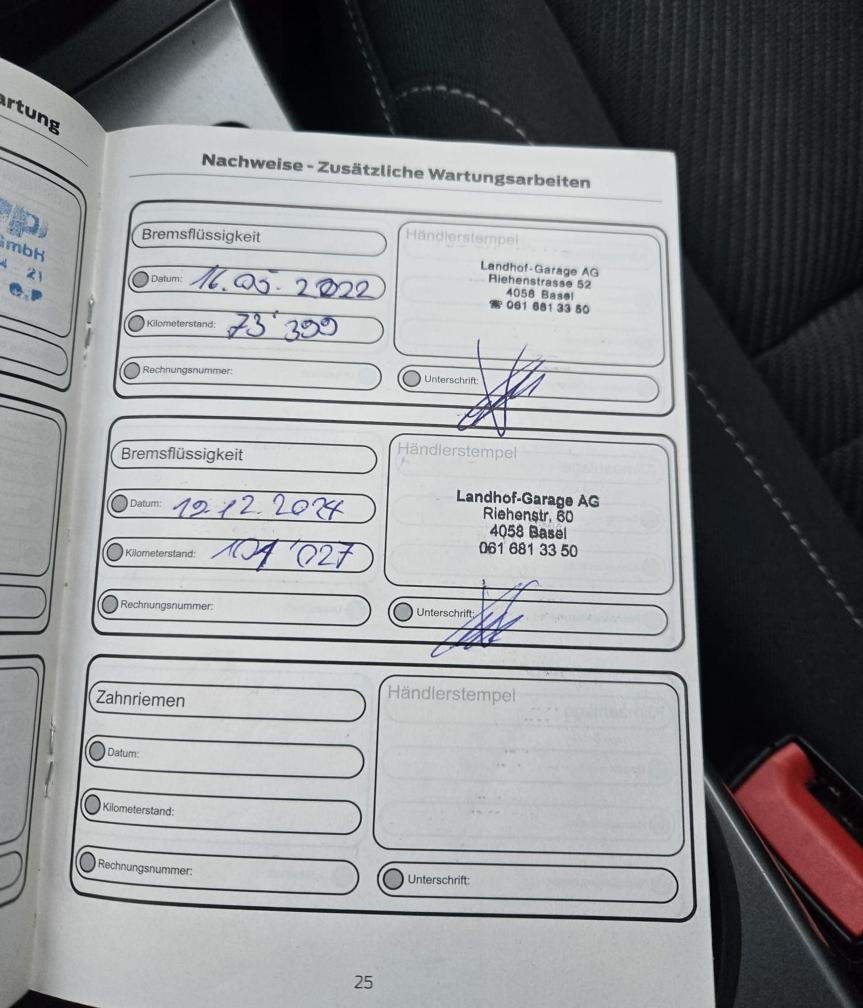 artung
GmbH
Nachweise - Zusätzliche Wartungsarbeiten
Bremsflüssigkeit
Datum: 16.05.2022
Kilometerstand: 73'399
Rechnungsnummer:
Händlerstempel
Landhof-Garage AG
Riehenstrasse 52
4058 Basel
☎ 061 681 33 50
Unterschrift:
Bremsflüssigkeit
Datum: 12.12.2024
Kilometerstand: 101'027
Rechnungsnummer:
Händlerstempel
Landhof-Garage AG
Riehenstr. 60
4058 Basel
061 681 33 50
Unterschrift:
Zahnriemen
Datum:
Kilometerstand:
Rechnungsnummer:
Händlerstempel
Unterschrift:
25